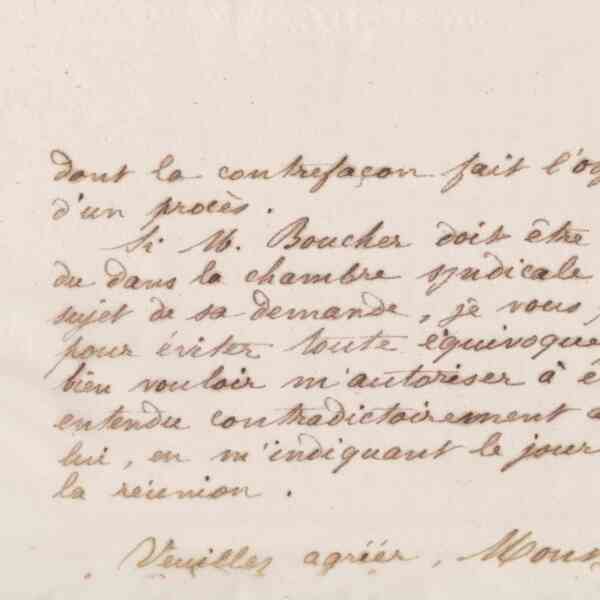 dont la contrefaçon fait l'o
d'un procès.
Si M. Boucher doit être
du dans la chambre syndicale
sujet de sa demande, je vous
pour éviter toute équivoque
bien vouloir m'autoriser à ê
entendu contradictoirement a
lui, en m'indiquant le jour
la réunion.
Veuillez agréer, Mons